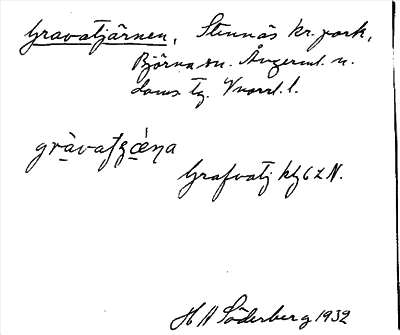 Gravatjärnen, Stennäs kr.park,
Björna sn. Ångerml. n.
doms Tg. Vnorrl. l.
Grafvatj kbl 62 N.
H A Söderberg 1932